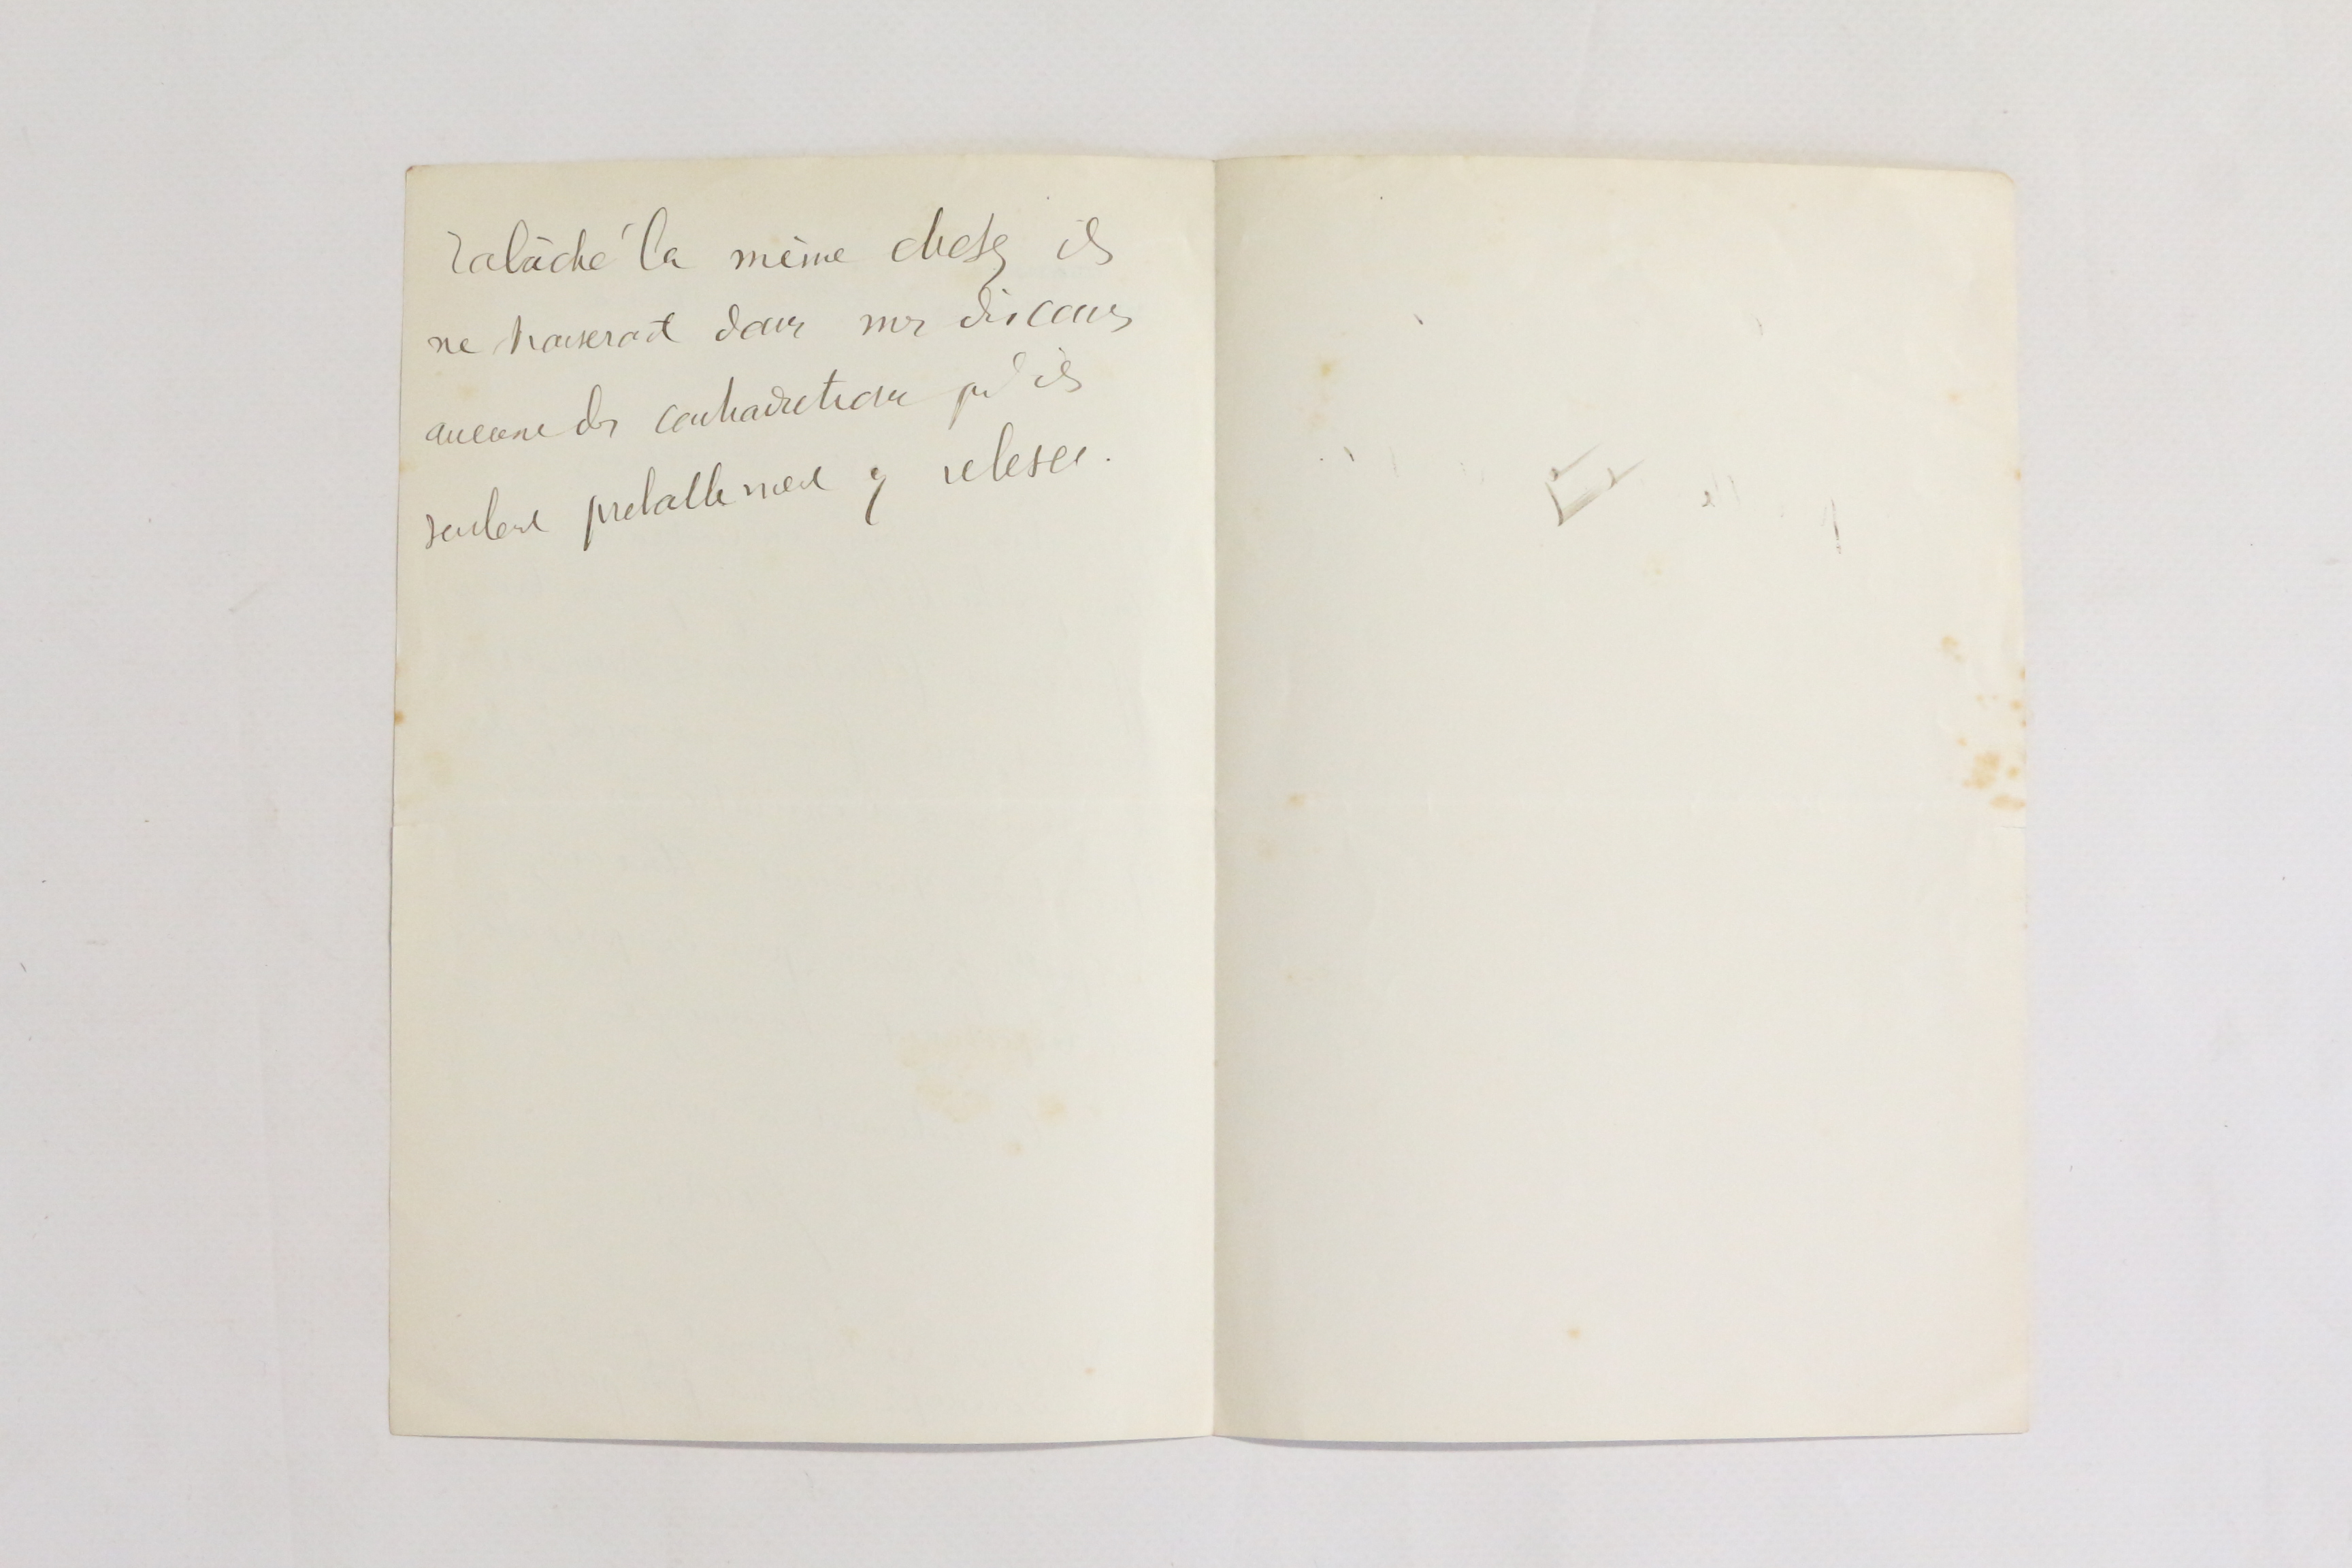 rabâché la même chose, ils
ne trouveront dans mes discours
aucune des contradictions qu'ils
veulent probablement y relever.